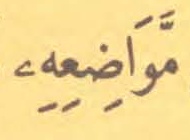 مَّوَاضِعِهِۦ